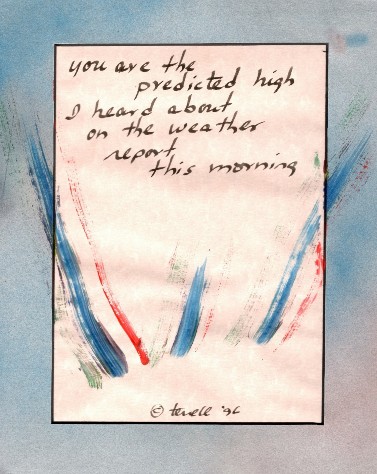 you are the
predicted high
I heard about
on the weather
report
this morning
© terrell '96